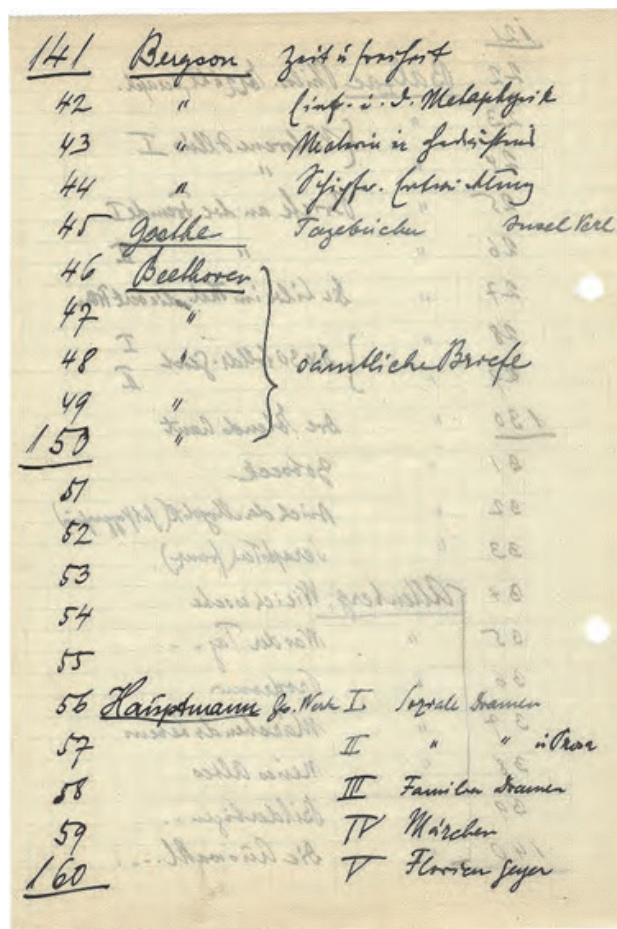 141 Bergson Zeit u Freiheit
42 " Einf. i. d. Metaphysik
43 " Materie u Gedächtnis
44 " Schöpfer. Entwicklung
45 Goethe Tagebücher Insel Verl
46 Beethoven
47 "
48 " sämtliche Briefe
49 "
150 "
51
52
53
54
55
56 Hauptmann Ges. Werke I Soziale Dramen
57 II " " u Prosa
58 III Familien Dramen
59 IV Märchen
160 V Florian Geyer